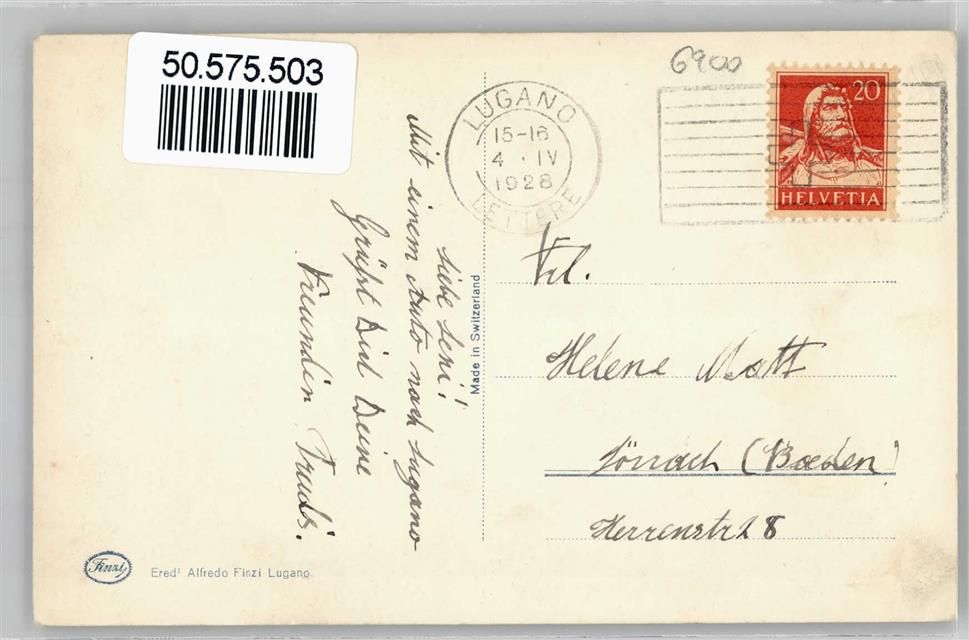 50.575.503
6900
LUGANO
15-16
4 · IV
1928
LETTERE
20
HELVETIA
Liebe Leni!
Mit einem Auto nach Lugano
Grüsst Dich Deine
Freundin Trudi.
Made in Switzerland
Frl.
Helene Mott
Lörrach (Baden)
Herrenstr 28
Finzi
Eredi Alfredo Finzi Lugano.